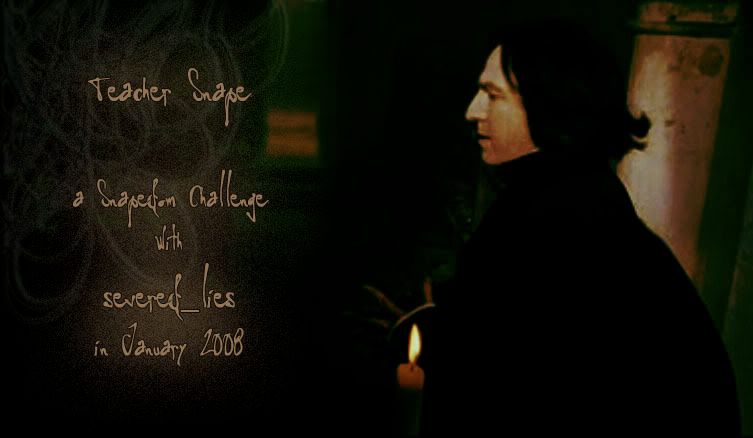 Teacher Snape
a Snapedom Challenge
with
severed_lies
in January 2008